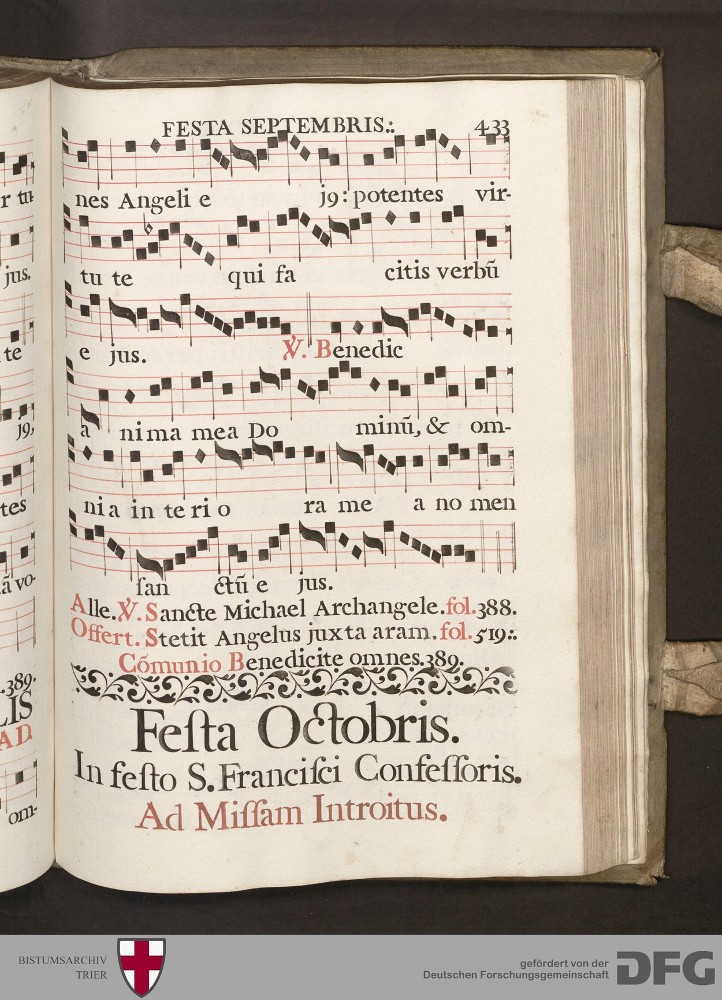 r tu-
jus.
te
j9,
tes
ã vo-
.389.
LIS
AD
om-
FESTA SEPTEMBRIS.:. 433
nes Angeli e j9: potentes vir-
tu te qui fa citis verbũ
e jus. ℣. Benedic
a nima mea Do minũ, & om-
nia in te rio ra me a no men
ſan ctũ e jus.
Alle. ℣. Sancte Michael Archangele. fol. 388.
Offert. Stetit Angelus juxta aram. fol. 519:.
Cõmunio Benedicite omnes. 389.
Feſta Octobris.
In feſto S. Franciſci Confeſſoris.
Ad Miſſam Introitus.
BISTUMSARCHIV
TRIER
gefördert von der
Deutschen Forschungsgemeinschaft
DFG